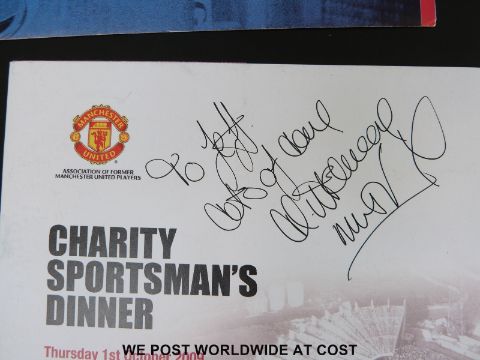 MANCHESTER
UNITED
ASSOCIATION OF FORMER
MANCHESTER UNITED PLAYERS
To Jeff
lots of love
CHARITY
SPORTSMAN'S
DINNER
Thursday 1st October 2009
WE POST WORLDWIDE AT COST